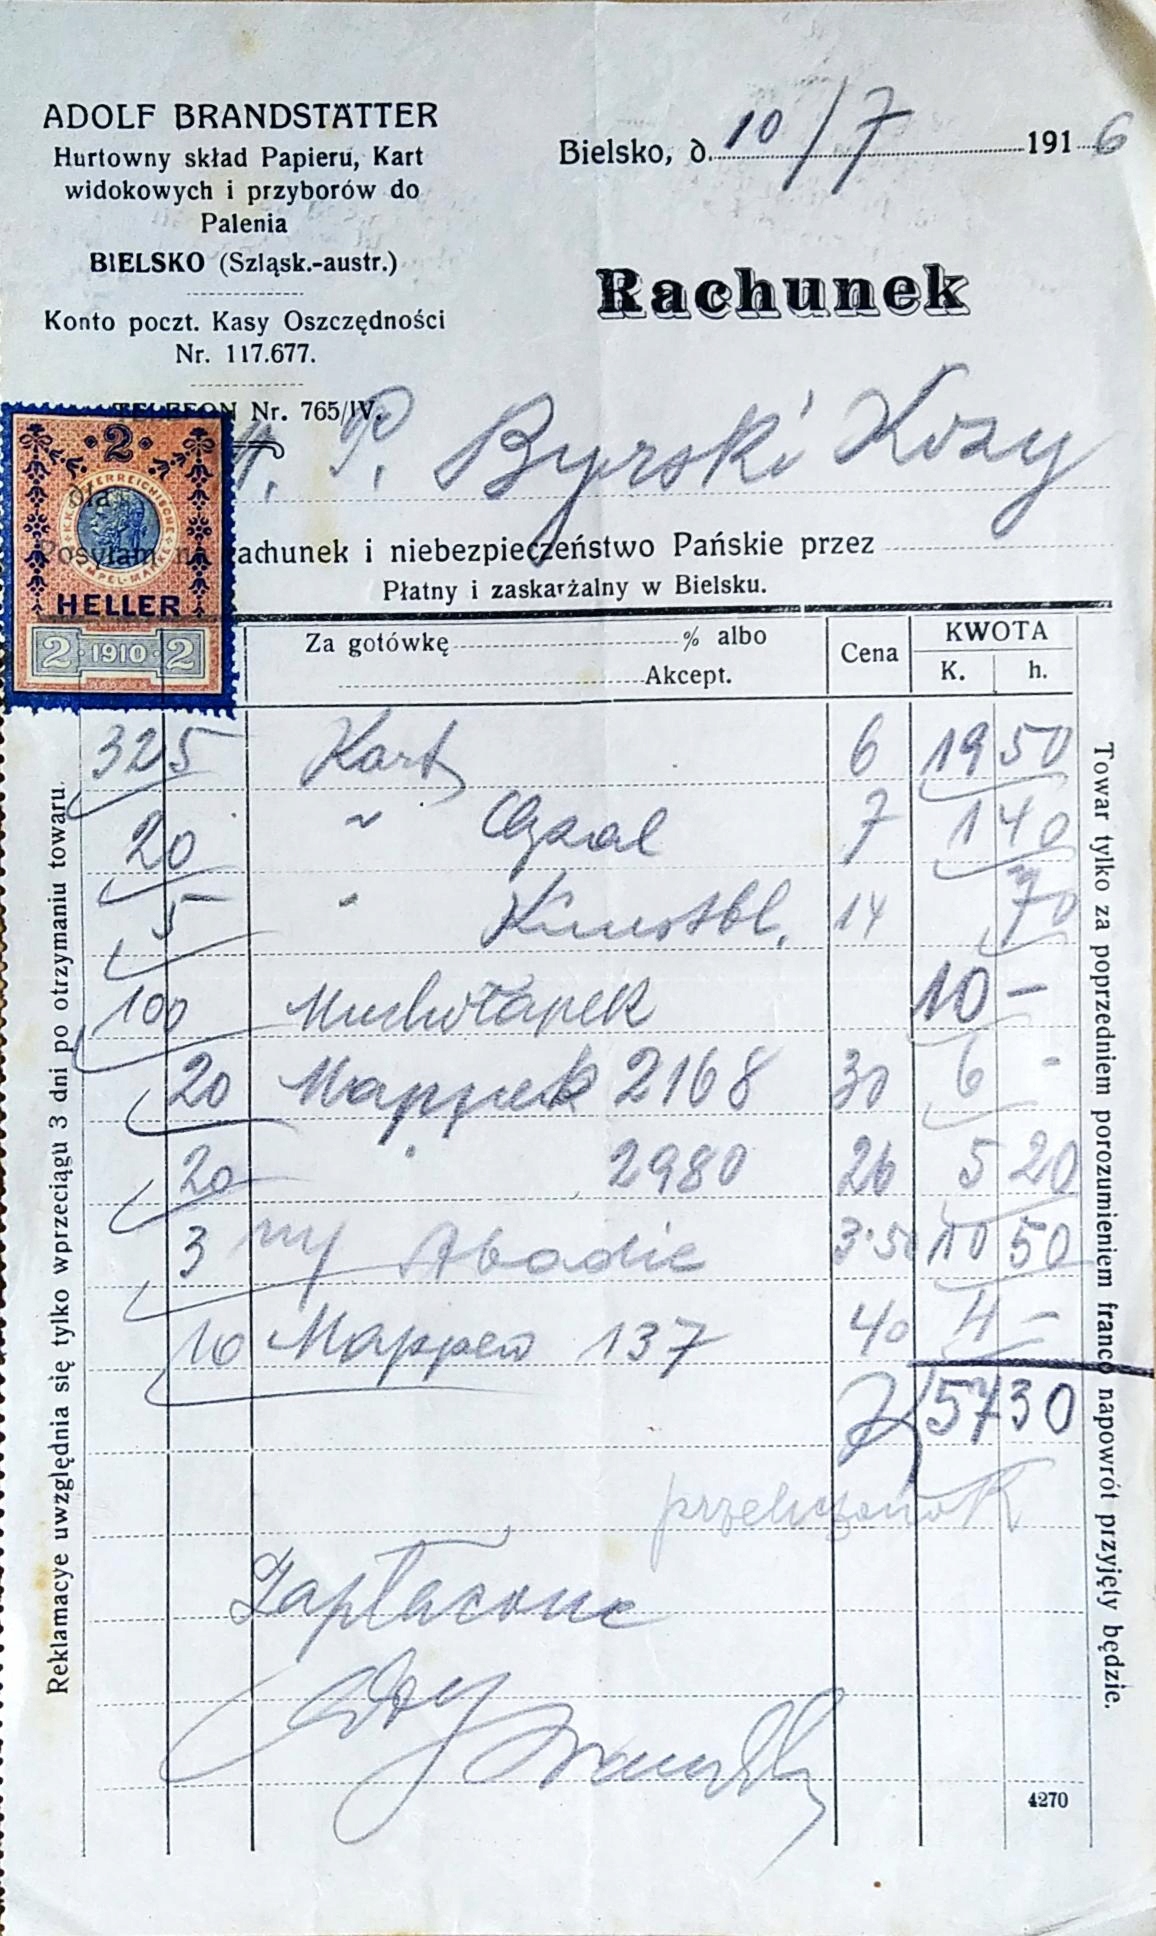 ADOLF BRANDSTÄTTER
Hurtowny skład Papieru, Kart
widokowych i przyborów do
Palenia
BIELSKO (Szląsk.-austr.)
Konto poczt. Kasy Oszczędności
Nr. 117.677.
TELEFON Nr. 765/IV.
Bielsko, d. 10/7 1916
Rachunek
P. Byrski Kozy
2
K.K. ÖSTERREICHISCHE
STEMPEL-MARKE
HELLER
2 1910 2
dla
Posyłam na rachunek i niebezpieczeństwo Pańskie przez
Płatny i zaskarżalny w Bielsku.
Za gotówkę % albo
Akcept.
Cena
KWOTA
K. h.
325 Kart 6 19 50
20 " Opal 7 1 40
5 " Kunstbl. 14 70
100 Muchołapek 10 -
20 Mappek 2168 30 6 -
20 " 2980 26 5 20
3 Abadie 3·50 10 50
10 Mappen 137 40 4 -
57 30
Zapłacone
4270
Reklamacye uwzględnia się tylko wprzeciągu 3 dni po otrzymaniu towaru.
Towar tylko za poprzedniem porozumieniem franco napowrót przyjęty będzie.